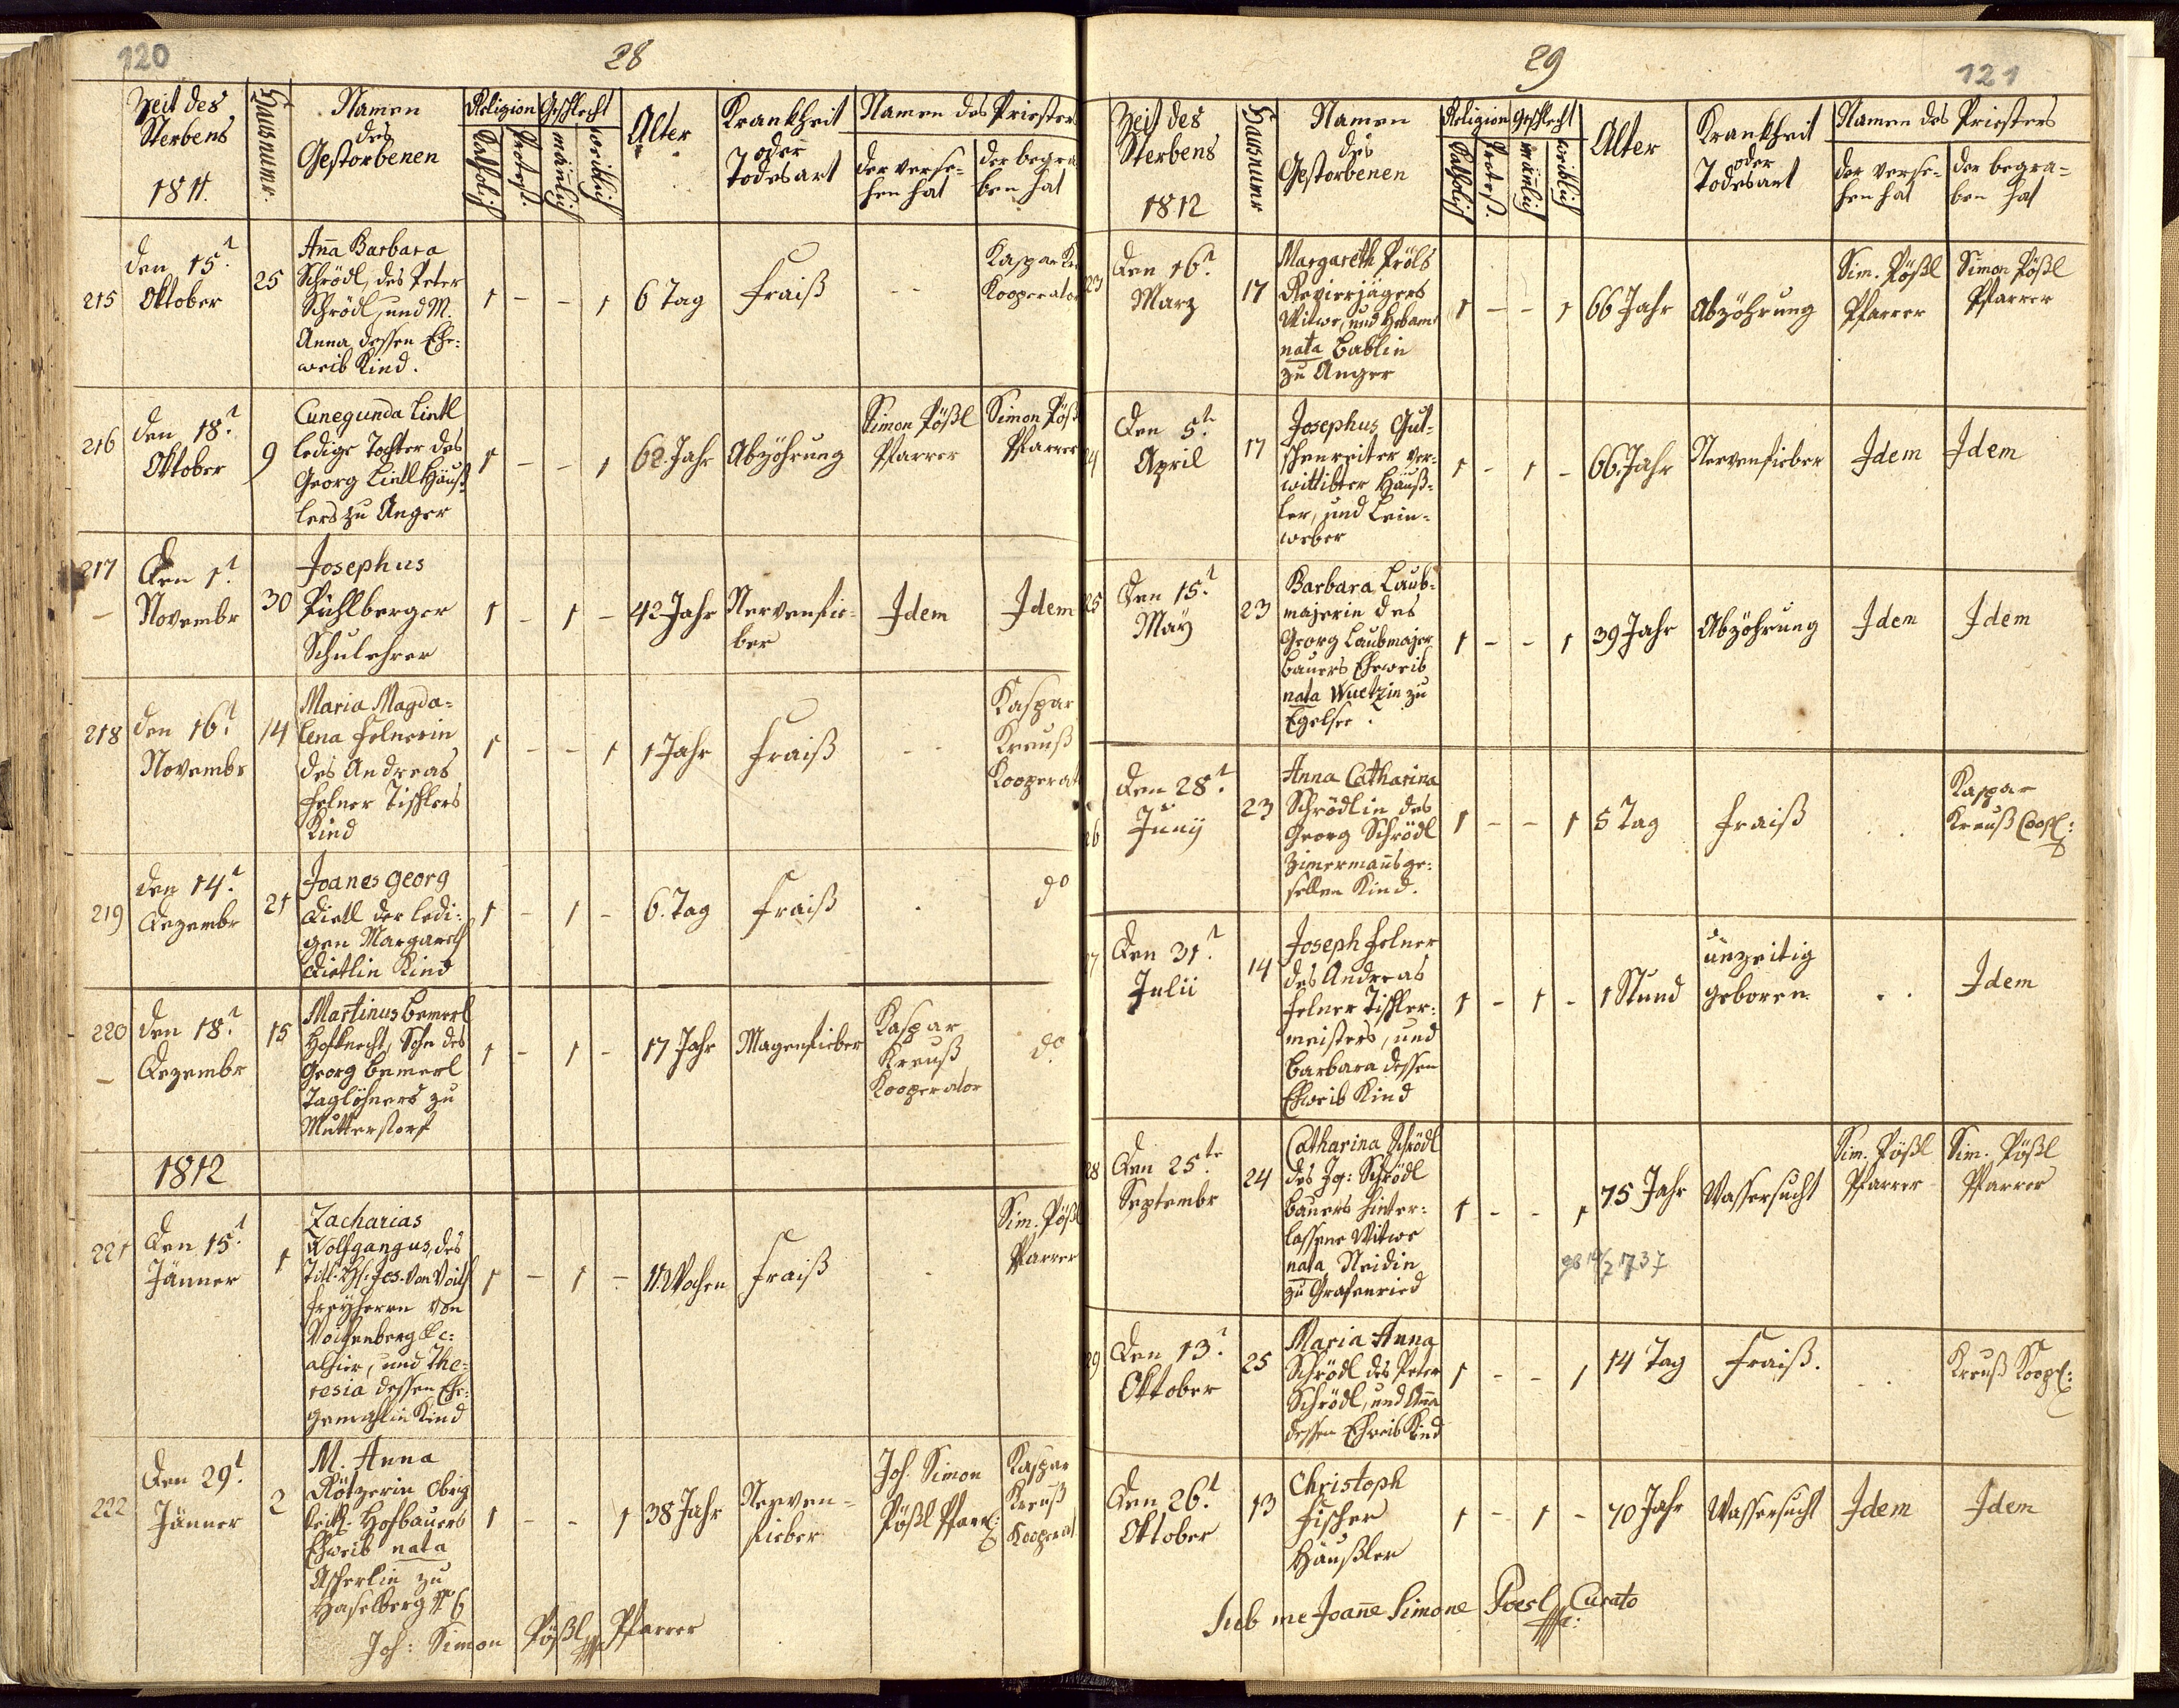 120
28
Zeit des
Sterbens
1811.
Hausnumr.
Namen
des
Gestorbenen
Religion
Katholisch
Protest.
Geschlecht
mänlich
weiblich
Alter
Krankheit
oder
Todesart
Namen des Priesters
der verse-
hen hat
der begra
ben hat
215
den 15t
Oktober
25
Aña Barbara
Schrödl, des Peter
Schrödl, und M.
Anna dessen Ehe-
weib Kind.
1 - - 1
6 Tag
Fraiß
- -
Kaspar Kr
Kooperator
216
den 18t
Oktober
9
Cunegunda Lintl
ledige Tochter des
Georg Lintl Häuß-
lers zu Anger
1 - - 1
62. Jahr
Abzöhrung
Simon Pößl
Pfarrer
Simon Pößl
Pfarrer
217
Den 1t
Novembr
30
Josephus
Pühlberger
Schulehrer
1 - 1 -
42 Jahr
Nervenfie-
ber
Idem
Idem
218
den 16t
Novembr
14
Maria Magda-
lena Felnerin
des Andreas
Felner Tischlers
Kind
1 - - 1
1 Jahr
Fraiß
- -
Kaspar
Kreuß
Kooperat
219
den 14t
Dezembr
21
Joanes Georg
Dietl der ledi-
gen Margareth
Dietlin Kind
1 - 1 -
6. Tag
Fraiß
.
do
220
den 18t
Dezembr
15
Martinus Bemerl
Hofknecht, Sohn des
Georg Bemerl
Taglöhners zu
Mutterstorf
1 - 1 -
17 Jahr
Magenfieber
Kaspar
Kreuß
Kooperator
do
1812
221
Den 15t
Jänner
1
Zacharias
Wolfgangus, des
Titl. H: Jos. von Voith
Freyherrn von
Voithenberg &c:
alhier, und The-
resia dessen Ehe-
gemahlin Kind
1 - 1 -
11. Wochen
Fraiß
-
Sim. Pößl
Pfarrer
222
Den 29t
Jänner
2
M. Anna
Rötzerin Obrig
keitl. Hofbauers
Eheweib nata
Ascherlin zu
Haselberg № 6
1 - - 1
38 Jahr
Nerven-
fieber
Joh. Simon
Pößl Pfarr:
Kaspar
Kreuß
Kooperat
Joh: Simon Pößl Pfarrer
29
121
Zeit des
Sterbens
1812
Hausnumr
Namen
des
Gestorbenen
Religion
Katholisch
Protest.
Geschlecht
mänlich
weiblich
Alter
Krankheit
oder
Todesart
Namen des Priesters
der verse-
hen hat
der begra-
ben hat
23
Den 16t
Marz
17
Margareth Pröls
Revierjägers
Witwe, und Hebam
nata Bablin
zu Anger
1 - - 1
66 Jahr
Abzöhrung
Sim. Pößl
Pfarrer
Simon Pößl
Pfarrer
24
Den 5t
April
17
Josephus Gut-
schenreiter ver-
wittibter Häuß-
ler, und Lein-
weber
1 - 1 -
66. Jahr
Nervenfieber
Idem
Idem
25
Den 15t
May
23
Barbara Laub-
majerin des
Georg Laubmajer
Bauers Eheweib
nata Wuetzin zu
Egelsee.
1 - - 1
39 Jahr
Abzöhrung
Idem
Idem
26
Den 28t
Junÿ
23
Anna Catharina
Schrödlin des
Georg Schrödl
Zimermañsge-
sellen Kind.
1 - - 1
5 Tag
Fraiß
. .
Kaspar
Kreuß Coop:
27
Den 31t
Julii
14
Joseph Felner
des Andreas
Felner Tischler-
meisters, und
Barbara dessen
Eheweib Kind
1 - 1 -
1 Stund
unzeitig
geboren.
. .
Idem
28
Den 25te
Septembr
24
Catharina Schrödl
des Jg: Schrödl
Bauers hinter-
lassene Witwe
nata Neidin
zu Grafenried
1 - - 1
75 Jahr
Wassersucht
Sim. Pößl
Pfarrer
Sim. Pößl
Pfarrer
1737
29
Den 13t
Oktober
25
Maria Anna
Schrödl des Peter
Schrödl, und Aña
dessen Eheweib Kind
1 - - 1
14 Tag
Fraiß.
- -
Kreuß Koop:
Den 26t
Oktober
13
Christoph
Fischer
Häußler
1 - 1 -
70 Jahr
Wassersucht
Idem
Idem
Sub me Joañe Simone Poesl Curato